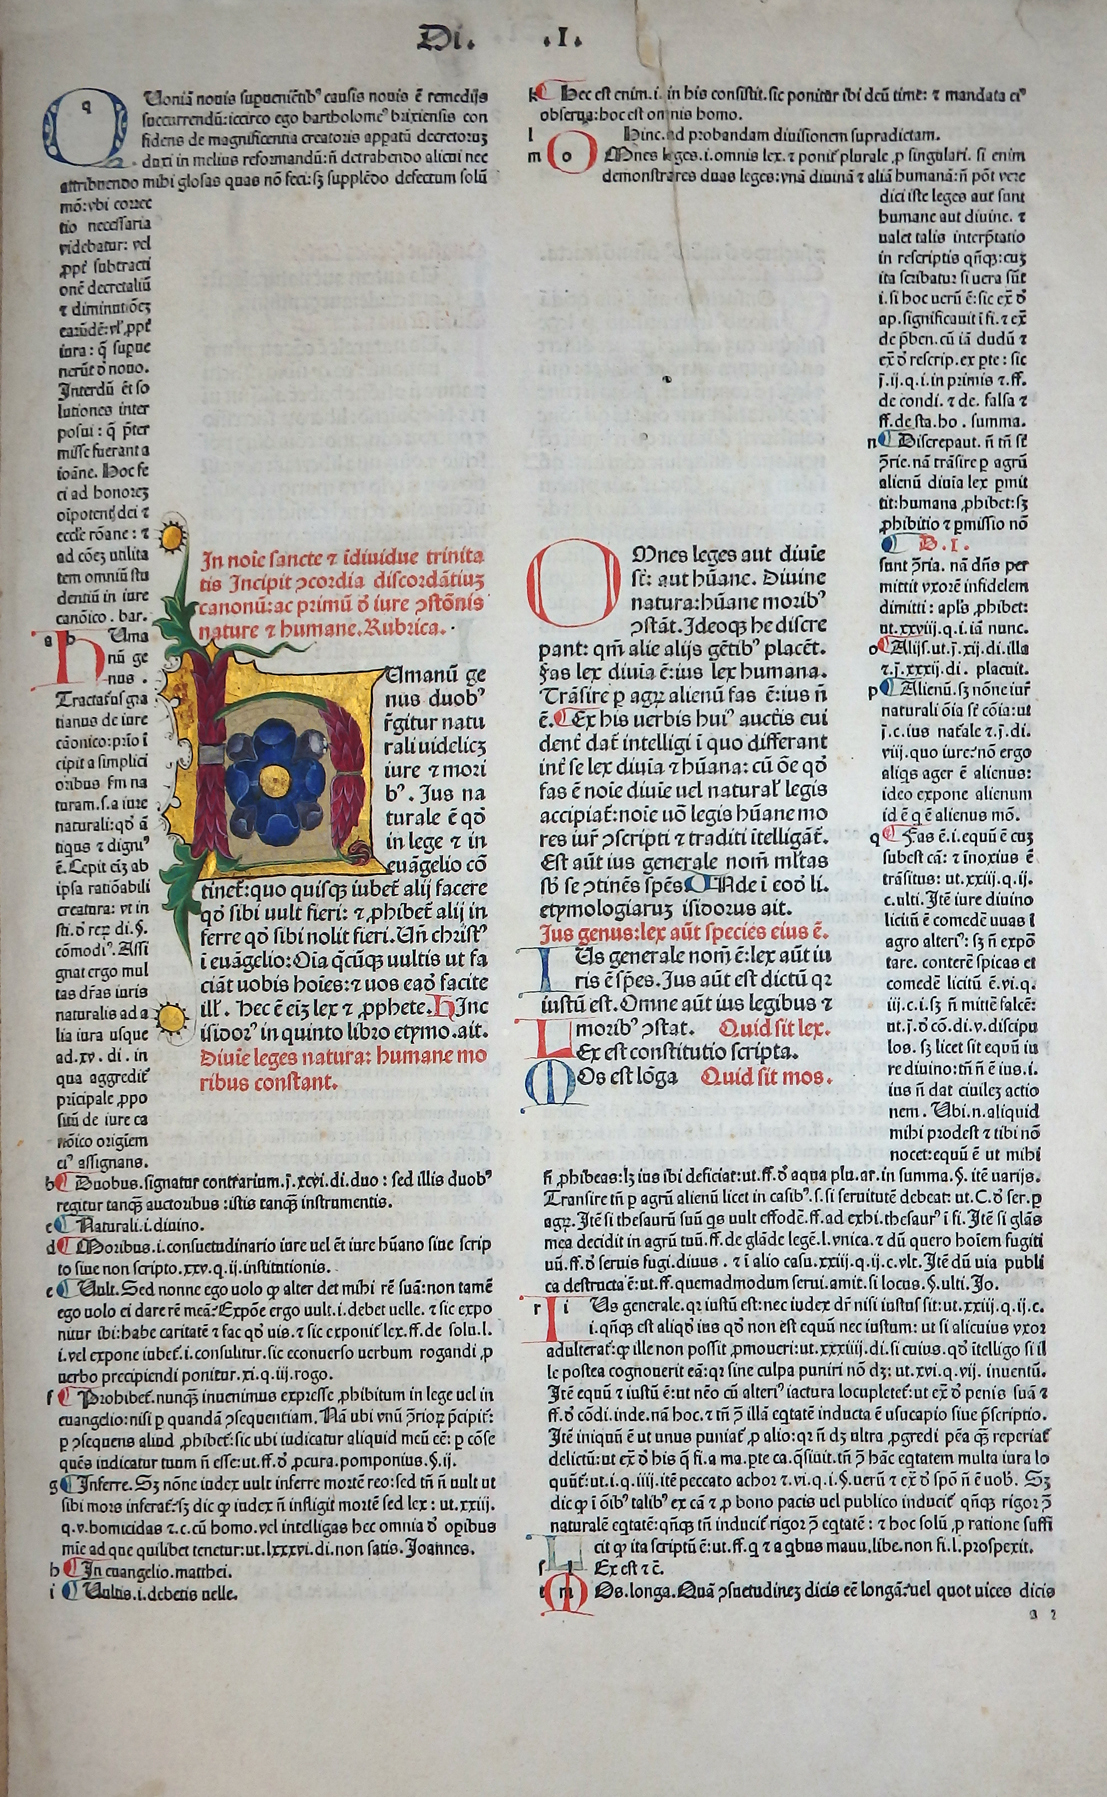 Di. .I.
QUoniã nouis supueniẽtibꝰ causis nouis ẽ remedijs
succurrendũ:iccirco ego bartholomeꝰ brixiensis con
fidens de magnificentia creatoris appatũ decretoruꝫ
duxi in melius reformandũ:ñ detrahendo alicui nec
attribuendo mihi glosas quas nõ feci:sꝫ supplẽdo defectum solũ
mõ:vbi correc
tio necessaria
videbatur: vel
ꝓpt̃ subtracti
onẽ decretaliũ
⁊ diminutiõeꝫ
earũdẽ:vl̓ ꝓpt̃
iura: q̃ supue
nerũt d̓ nouo.
Interdũ ẽt so
lutiones inter
posui: q̃ pt̃er
misse fuerant a
ioãne. Hoc fe
ci ad honoreꝫ
oĩpotentꝭ dei ⁊
eccl̓e rõane: ⁊
ad cõeꝫ utilita
tem omniũ stu
dentiũ in iure
canõico. bar.
a h Uma
nũ ge
nus.
Tractaturꝰ gra
tianus de iure
cãonico:prĩo ĩ
cipit a simplici
oribus sm̃ na
turam.s.a iure
naturali:qd̓ ẽ
ãtiqus ⁊ digniꝰ
ẽ.Cepit ei̓ꝫ ab
ipsa ratiõabili
creatura: vt in
sti.d̓ reꝝ di.§.
cõmodiꝰ. Assi
gnat ergo mul
tas dr̃as iuris
naturalis ad a
lia iura usque
ad.xv. di. in
qua aggredit̃
prĩcipale ꝓpo
situ̓ de iure ca
nõico originem
eiꝰ assignans.
In noĩe sancte ⁊ ĩdiuidue trinita
tis Incipit ↄcordia discordãtiuꝫ
canonũ:ac primũ d̓ iure ↄstõnis
nature ⁊ humane.Rubrica.
HUmanũ ge
nus duobꝰ
r̃gitur natu
rali uidelicꝫ
iure ⁊ mori
bꝰ. Jus na
turale ẽ qd̓
in lege ⁊ in
euãgelio cõ
tinet̃:quo quisqꝫ iubet̃ alij facere
qd̓ sibi uult fieri: ⁊ ꝓhibet̃ alij in
ferre qd̓ sibi nolit fieri.Uñ christꝰ
ĩ euãgelio:Oĩa q̃cũqꝫ uultis ut fa
ciãt uobis hoĩes:⁊ uos ead̓ facite
ill̓. Hec ẽ ei̓ꝫ lex ⁊ ꝓphete.HInc
isidorꝰ in quinto libro etymo.ait.
Diuĩe leges natura: humane mo
ribus constant.
b Duobus.signatur contrarium.j̃.xcvi.di.duo: sed illis duobꝰ
regitur tanqꝫ auctoribus:istis tanqꝫ instrumentis.
c Naturali.i.diuino.
d Moribus.i.consuetudinario iure uel ẽt iure hũano siue scrip
to siue non scripto.xxv.q.ij.institutionis.
e Uult.Sed nonne ego uolo ꝙ alter det mihi rẽ suã:non tamẽ
ego uolo ei dare rẽ meã:Expõe ergo uult.i.debet uelle.⁊ sic expo
nitur ibi:habe caritatẽ ⁊ fac qd̓ uis.⁊ sic exponit̃ lex.ff.de solu.l.
i.vel expone iubet̃.i.consulitur.sic econuerso uerbum rogandi ꝓ
uerbo precipiendi ponitur.xi.q.iij.rogo.
f Prohibet̃.nunqꝫ inuenimus expresse ꝓhibitum in lege uel in
euangelio:nisi ꝑ quandã ↄsequentiam.Nã ubi vnũ ↄ̃rioꝝ p̃cipit̃:
ꝑ ↄsequens aliud ꝓhibet̃:sic ubi iudicatur aliquid meũ eẽ: ꝑ cõse
quẽs iudicatur tuum ñ esse:ut.ff.d̓ ꝓcura.pomponius.§.ij.
g Inferre.Sꝫ nõne iudex uult inferre mortẽ reo:sed tñ ñ uult ut
sibi mors inferat̃:sꝫ dic ꝙ iudex ñ infligit mortẽ sed lex: ut.xxiij.
q.v.homicidas ⁊.c.cũ homo.vel intelligas hec omnia d̓ oꝑibus
mie ad que quilibet tenetur:ut.lxxxvi.di.non satis.Joannes.
h In euangelio.matthei.
i Uultis.i.debetis uelle.
k Hec est enim.i.in his consistit.sic ponitur ibi deũ time: ⁊ mandata eiꝰ
obserua:hoc est omnis homo.
l Hinc.ad probandam diuisionem supradictam.
m OMnes leges.i.omnis lex.⁊ ponit̃ plurale ꝓ singulari. si enim
demonstrares duas leges:vnã diuinã ⁊ aliã humanã:ñ põt vere
dici iste leges aut sunt
humane aut diuine. ⁊
ualet talis interp̃tatio
in rescriptis qñqꝫ:cuꝫ
ita scribatur: si uera sũt
i.si hoc uerũ ẽ:sic ex̃ d̓
ap.significauit ĩ fi.⁊ ex̃
de p̃ben.cũ iã dudũ ⁊
ex̃ d̓ rescrip.ex pte: sic
j̃.ij.q.i.in primis ⁊.ff.
de condi.⁊ de. falsa ⁊
ff.de sta.ho. summa.
n Discrepaut. ñ tñ sẽ
ↄ̃rie.nã trãsire ꝑ agrũ
alienũ diuĩa lex ꝑmit
tit:humana ꝓhibet:sꝫ
ꝓhibitio ⁊ ꝑmissio nõ
D.I.
sunt ↄ̃ria. nã dñs per
mittit vxorẽ infidelem
dimitti: apl̓s ꝓhibet:
ut.xxviij.q.i.iã nunc.
o Alijs.ut.j̃.xij.di.illa
⁊.j̃.xxxij.di. placuit.
p Alienũ.sꝫ nõne iur̃
naturali oĩa sẽ cõia:ut
j̃.c.ius natũle ⁊.j̃.di.
viij.quo iure:nõ ergo
aliqs ager ẽ alienus:
ideo expone alienum
id ẽ q̃ ẽ alienus mõ.
q Fas ẽ.i.equũ ẽ cuꝫ
subest cã: ⁊ inoxius ẽ
trãsitus: ut.xxiij.q.ij.
c.ulti. Itẽ iure diuino
licitũ ẽ comedẽ uuas ĩ
agro alteriꝰ: sꝫ ñ expõ
tare. conterẽ spicas et
comedẽ licitũ ẽ.vi.q.
iij.c.i.sꝫ ñ mittẽ falcẽ:
ut.j̃.d̓ cõ.di.v.discipu
los. sꝫ licet sit equũ iu
re diuino:tñ ñ ẽ ius.i.
ius ñ dat ciuileꝫ actio
nem. Ubi.n.aliquid
mihi prodest ⁊ tibi nõ
nocet:equũ ẽ ut mihi
OMnes leges aut diuĩe
sẽ: aut hũane. Diuine
natura:hũane moribꝰ
ↄstãt.Ideoqꝫ he discre
pant: qm̃ alie alijs gẽtibꝰ placẽt.
Fas lex diuĩa ẽ:ius lex humana.
Trãsire ꝑ agꝝ alienũ fas ẽ:ius ñ
ẽ. Ex his uerbis huiꝰ auctis eui
dent̃ dat̃ intelligi ĩ quo differant
int̃ se lex diuĩa ⁊ hũana: cũ õe qd̓
fas ẽ noĩe diuĩe uel natural̓ legis
accipiat̃:noĩe uo̓ legis hũane mo
res iur̃ ↄscripti ⁊ traditi ĩtelligãt̃.
Est aũt ius generale nom̃ ml̓tas
sb̓ se ↄtinẽs spẽs.UNde ĩ eod̓ li.
etymologiaruꝫ isidorus ait.
Jus genus:lex aũt species eius ẽ.
IUs generale nom̃ ẽ:lex aũt iu
ris ẽ spẽs.Jus aũt est dictũ qꝛ
iustũ est.Omne aũt ius legibus ⁊
moribꝰ ↄstat. Quid sit lex.
LEx est constitutio scripta.
MOs est lõga Quid sit mos.
fi ꝓhibeas:lꝫ ius ibi deficiat:ut.ff.d̓ aqua plu.ar.in summa.§.itẽ uarijs.
Transire tñ ꝑ agrũ alienũ licet in casibꝰ.s.si seruitutẽ debeat: ut.C.d̓ ser.ꝑ
agꝝ.Itẽ si thesaurũ suũ qs uult effodẽ.ff.ad exhi.thesaurꝰ ĩ fi.Itẽ si glãs
mea decidit in agrũ tuũ.ff.de glãde legẽ.l.vnica.⁊ dũ quero hoĩem fugiti
uũ.ff.d̓ seruis fugi.diuus.⁊ ĩ alio casu.xxiij.q.ij.c.vlt.Itẽ dũ uia publi
ca destructa ẽ:ut.ff.quemadmodum serui.amit.si locus.§.ulti.Jo.
r IUs generale.qꝛ iustũ est:nec iudex dr̃ nisi iustus sit:ut.xxiij.q.ij.c.
i.qñqꝫ est aliqd̓ ius qd̓ non est equũ nec iustum: ut si alicuius vxor
adulterat̃:ꝙ ille non possit ꝓmoueri:ut.xxxiiij.di.si cuius.qd̓ ĩtelligo si il
le postea cognouerit eã:qꝛ sine culpa puniri nõ dꝫ: ut.xvi.q.vij. inuentũ.
Itẽ equũ ⁊ iustũ ẽ:ut nẽo cũ alteriꝰ iactura locupletet̃:ut ex̃ d̓ penis suã ⁊
ff.d̓ cõdi.inde.nã hoc.⁊ tñ ↄ̃ illã eq̃tatẽ inducta ẽ usucapio siue p̃scriptio.
Itẽ iniquũ ẽ ut unus puniat̃ ꝓ alio:qꝛ ñ dꝫ ultra ꝓgredi pẽa qꝫ reperiat̃
delictũ:ut ex̃ d̓ his q̃ fi.a ma.pte ca.q̃siuit.tñ ↄ̃ hãc eq̃tatem multa iura lo
quũt̃:ut.i.q.iiij.itẽ peccato achoꝛ ⁊.vi.q.i.§.uerũ ⁊ ex̃ d̓ spõ ñ ẽ uob. Sꝫ
dic ꝙ ĩ oĩbꝰ talibꝰ ex cã ⁊ ꝓ bono pacis uel publico inducit̃ qñqꝫ rigor ↄ̃
naturalẽ eq̃tatẽ:qñqꝫ tñ inducit̃ rigor ↄ̃ eq̃tatẽ: ⁊ hoc solũ ꝓ ratione suffi
cit ꝙ ita scriptũ ẽ:ut.ff.q ⁊ a qbus manu.libe.non fi.l.prospexit.
s LEx est ⁊ c̃.
t MOs.longa.Quã ↄsuetudineꝫ dicis eẽ longã:uel quot uices dicis
a 2